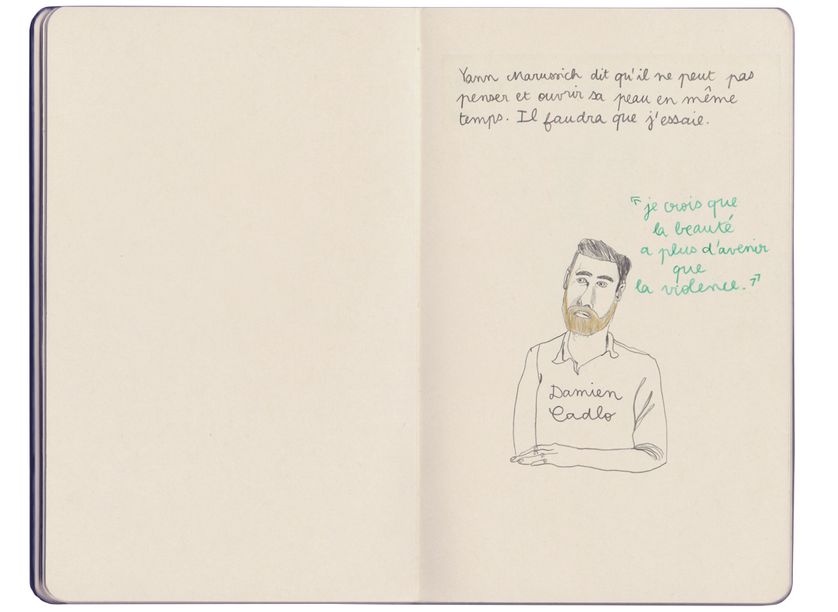 Yann Marussich dit qu'il ne peut pas
penser et ouvrir sa peau en même
temps. Il faudra que j'essaie.
"je crois que
la beauté
a plus d'avenir
que
la violence."
Damien
Cadlo